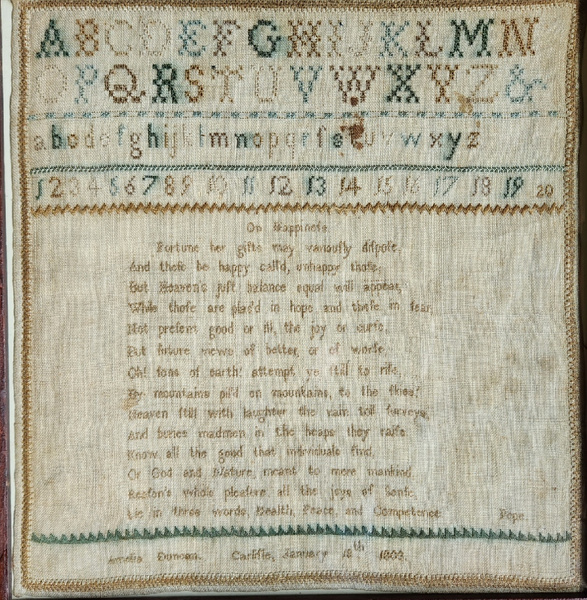 A B C D E F G H I J K L M N
O P Q R S T U V W X Y Z &
a b c d e f g h i j k l m n o p q r ſ s t u v w x y z
1 2 3 4 5 6 7 8 9 10 11 12 13 14 15 16 17 18 19 20
On Happineſs.
Fortune her gifts may variouſly diſpoſe,
And theſe be happy call'd, unhappy thoſe;
But Heaven's juſt balance equal will appear,
While thoſe are plac'd in hope and theſe in fear,
Not preſent good or ill, the joy or curſe,
But future views of better, or of worſe.
Oh! ſons of earth! attempt ye ſtill to riſe,
By mountains pil'd on mountains, to the ſkies?
Heaven ſtill with laughter the vain toil ſurveys,
And buries madmen in the heaps they raiſe.
Know, all the good that individuals find,
Or God and Nature, meant to mere mankind,
Reaſon's whole pleaſure, all the joys of Senſe,
Lie in three words, Health, Peace, and Competence Pope.
Amelia Duncan. Carliſle, January 18th 1803.